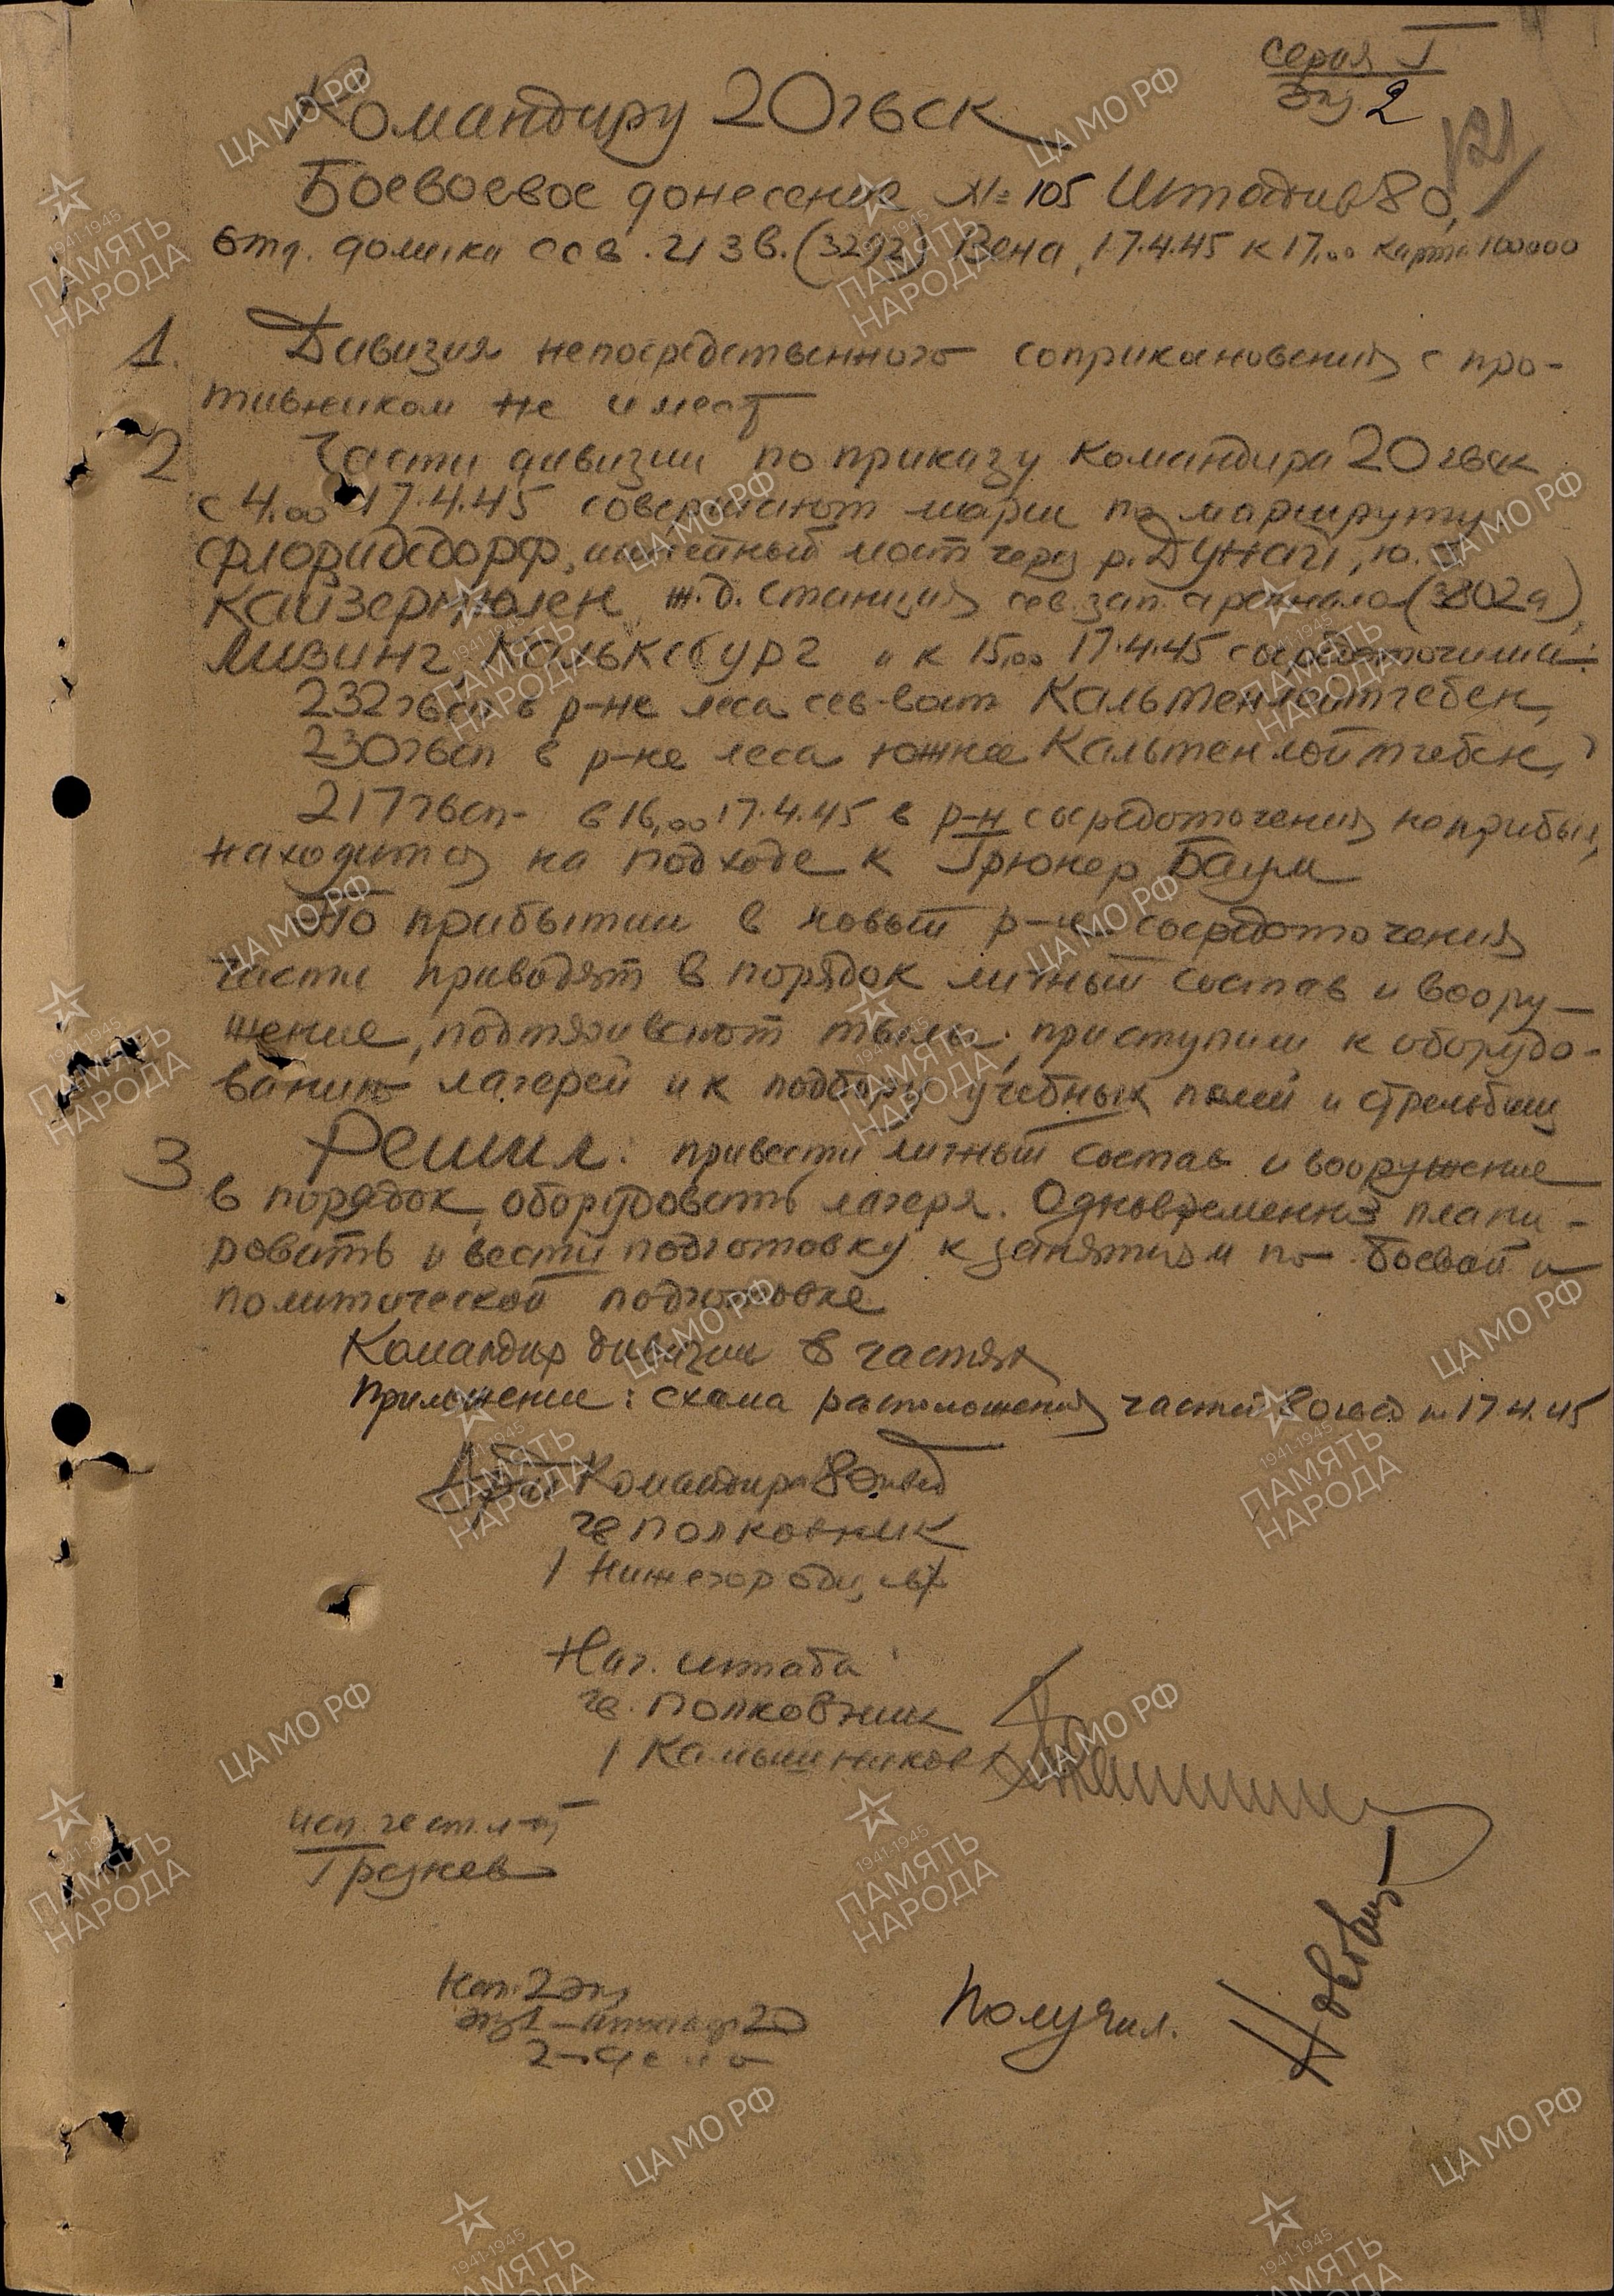 серия I
Экз. 2
121
Командиру 20 гвск
Боевоевое донесение № 105 Штадив 80,
отд. домики сев. 213 в. (3292) Вена, 17.4.45 к 17.00 карта 100000
1. Дивизия непосредственного соприкановения с про-
тивником не имеет
2 Части дивизии по приказу командира 20 гвск
с 4.00 17.4.45 совершают марш по маршруту
Флоридсдорф, шпейный мост через р. Дунай, ю.
Кайзермюлен, ж.д. станция сев. зап. арсенала (3802а),
Лизинг, Кальксбург и к 15.00 17.4.45 сосредоточились:
232 гвсп в р-не леса сев-вост Кальтенлойтгебен,
230 гвсп в р-не леса южнее Кальтенлойтгебен,
217 гвсп - в 16.00 17.4.45 в р-н сосредоточения не прибыл,
находится на подходе к Грюнер Баум
По прибытии в новый р-н сосредоточения
части приводят в порядок личный состав и воору-
жение, подтягивают тылы, приступили к оборудо-
ванию лагерей и к подбору учебных полей и стрельбищ
3 Решил: привести личный состав и вооружение
в порядок, оборудовать лагеря. Одновременно плани-
ровать и вести подготовку к занятиям по боевой и
политической подготовке
Командир дивизии в частях
Приложение: схема расположения частей 80 гвсд на 17.4.45
Командира 80 гвсд
гв полковник
/ Нижегородцев /
Нач. штаба
гв. полковник
/ Камышников /
исп. гв ст. л-т
Грезнев
Нап. 2 экз
экз 1 – штаб 20
2 – дело
Получил.
ЦА МО РФ
1941-1945
ПАМЯТЬ
НАРОДА